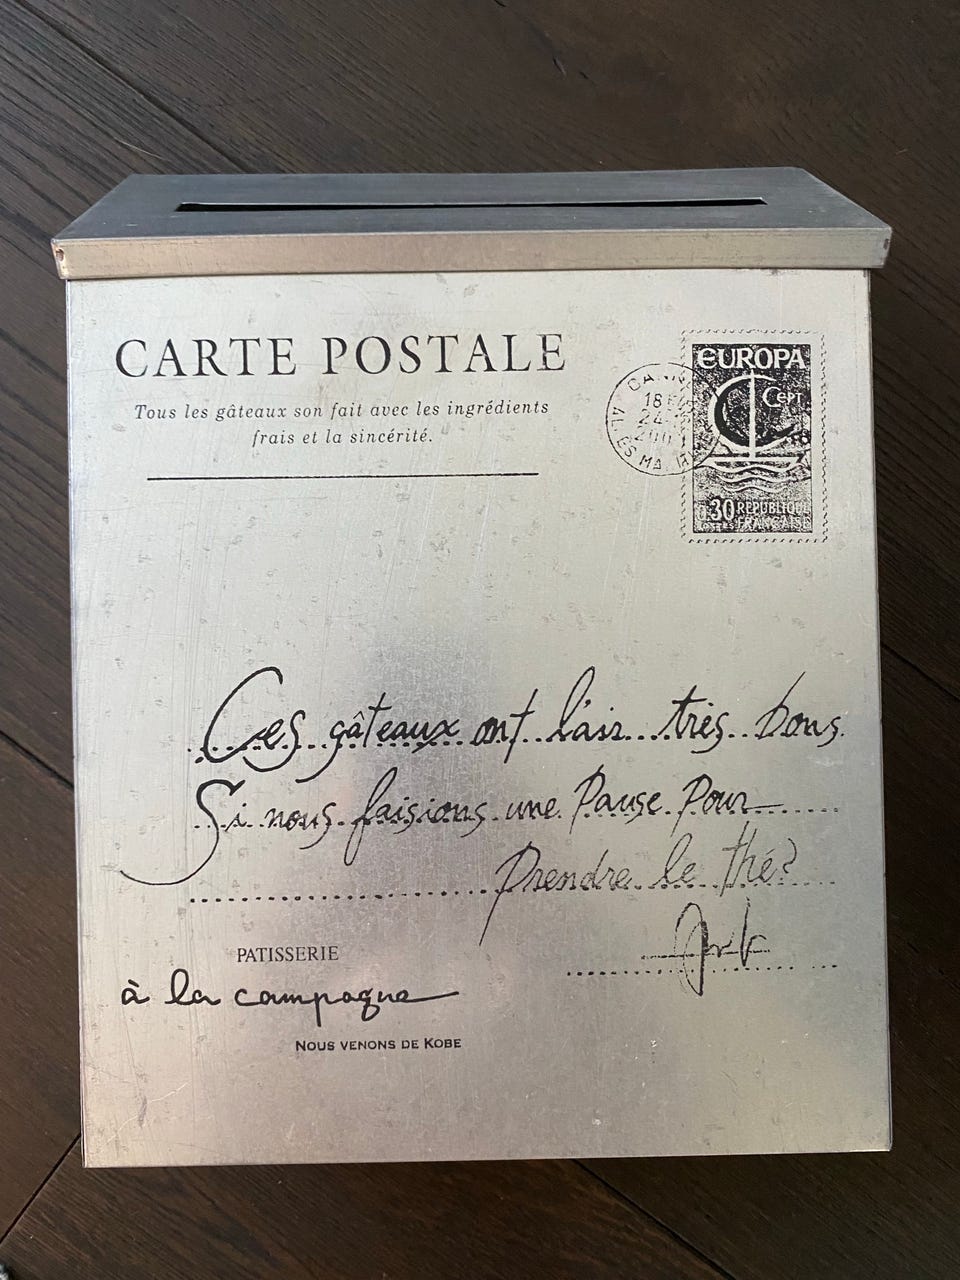 CARTE POSTALE
Tous les gâteaux son fait avec les ingrédients
frais et la sincérité.
18
24
EUROPA
CEPT
0.30 REPUBLIQUE
POSTES FRANÇAISE
Ces gâteaux ont l'air très bons.
Si nous faisions une Pause Pour
Prendre le thé?
PATISSERIE
à la campagne
NOUS VENONS DE KOBE